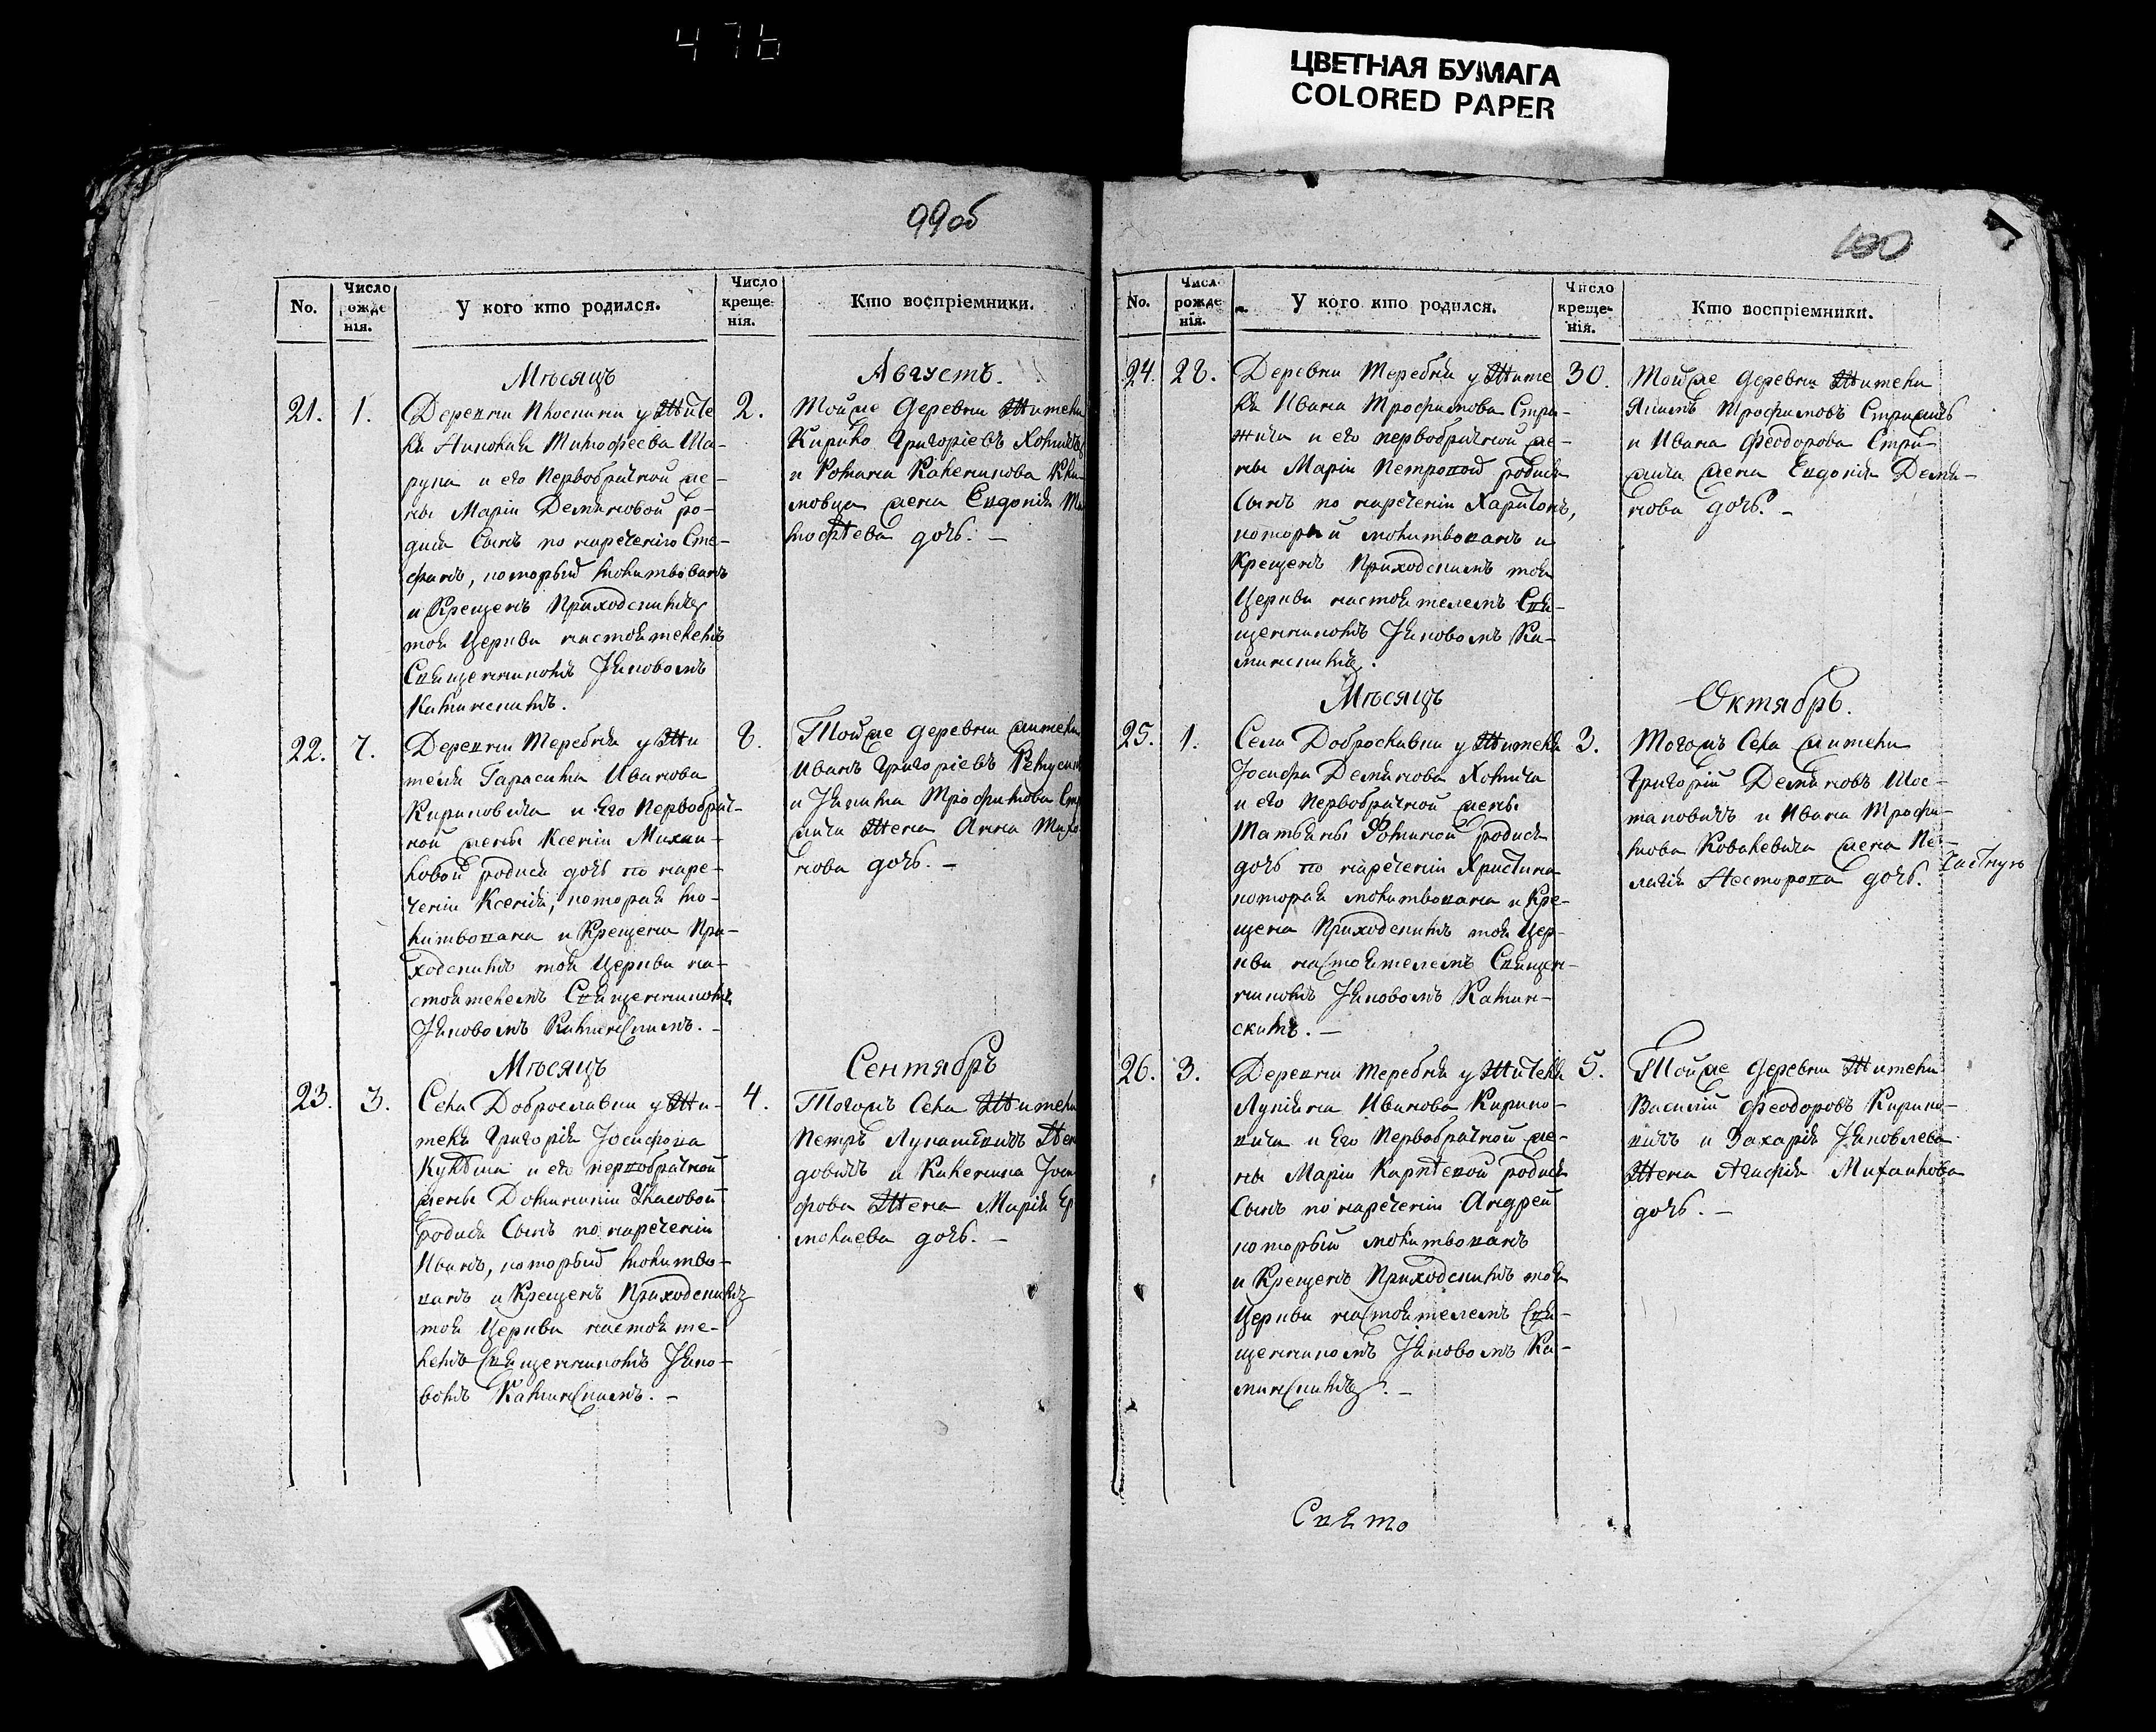 476
ЦВЕТНАЯ БУМАГА
COLORED PAPER
99об
No.
Число рожденія.
У кого кто родился.
Число крещенія.
Кто воспріемники.
Мѣсяцъ
Августъ.
21.
1.
Деревни у Жите
ля Тимофеева Ша-
рупа и его Первобрачной же-
ны Маріи Демяновой ро-
дися Сынъ по нареченію Сте-
фанъ, который молитвованъ
и Крещенъ Приходскимъ
тоя Церкви настоятелемъ
Священникомъ Іаковомъ
Каминскимъ.
2.
Тойже деревни Жители
Кирило Григоріевъ
и Романа Каленикова Кли-
мовца жена Евдокія
дочь. —
22.
7.
Деревни Теребня у Жи
теля Гарасима Иванова
Кириковича и Его Первобрач-
ной жены Ксеніи Михаи-
ловой родися дочь по наре-
ченіи Ксенія, которая мо-
литвована и Крещена При-
ходскимъ тоя Церкви на-
стоятелемъ Священникомъ
Іаковомъ Каминскимъ. —
8.
Тойже деревни жители
Иванъ Григоріевъ
и Іакима Трофимова
жича Жена Анна
нова дочь. —
Мѣсяцъ
Сентябръ
23.
3.
Села Доброславки у Жи-
теля Григорія Іосифова
и его первобрачной
жены Домникіи Власовой
родися Сынъ по нареченіи
Иванъ, который молитво-
ванъ и Крещенъ Приходскимъ
тоя Церкви настояте-
лемъ Священникомъ Іако-
вомъ Каминскимъ. —
4.
Тогожъ Села Жители
Петръ
довичъ и Каленика Іоси
фова Жена Марія Ер
молаева дочь. —
100
No.
Число рожденія.
У кого кто родился.
Число крещенія.
Кто воспріемники.
24.
28.
Деревни Теребня у Жите
ля Ивана Трофимова Стри-
жича и его первобрачной же-
ны Маріи Петровой родися
Сынъ по нареченіи Харитонъ,
который молитвованъ и
Крещенъ Приходскимъ тоя
Церкви настоятелемъ Свя-
щенникомъ Іаковомъ Ка-
минскимъ.
30.
Тойже деревни Жители
Якимъ Трофимовъ Стрижичъ
и Ивана Феодорова Стри-
жича жена Евдокія Демя-
нова дочь. —
Мѣсяцъ
Октябрь.
25.
1.
Села Доброславки у Жителя
Іосифа Демянова Хомича
и его Первобрачной жены
Татьяны Фоминой родися
дочь по нареченіи Христина
которая молитвована и Кре-
щена Приходскимъ тоя Цер-
кви настоятелемъ Священ-
никомъ Іаковомъ Камин-
скимъ. —
3.
Тогожъ Села жители
Григорій Демяновъ Шос-
таковичъ и Ивана Трофи-
мова Ковалевича жена Пе-
лагія Несторова дочь.
26.
3.
Деревни Теребня у Жителя
Лукіяна Иванова Кирико-
вича и Его Первобрачной же-
ны Маріи Карпѣевой родися
Сынъ по нареченіи Андрей
который молитвованъ
и Крещенъ Приходскимъ тоя
Церкви настоятелемъ Свя-
щенникомъ Іаковомъ Ка-
минскимъ. —
5.
Тойже деревни Жители
Василій Феодоровъ Кирико-
вичъ и Захарія Іаковлева
Жена Агафія Михаилова
дочь. —
Свято